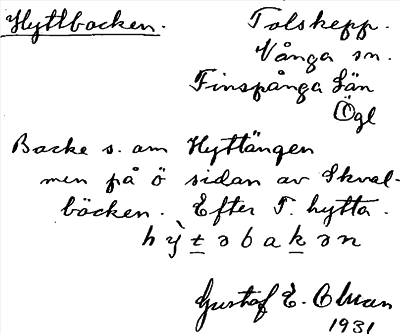 Hyttbacken.
Tolskepp.
Vånga sn.
Finspånga län
Ögl
Backe s. om Hyttängen
men på ö sidan av Skval-
bäcken. Efter T. hytta.
hỳtəbakən
Gustaf E.
1931